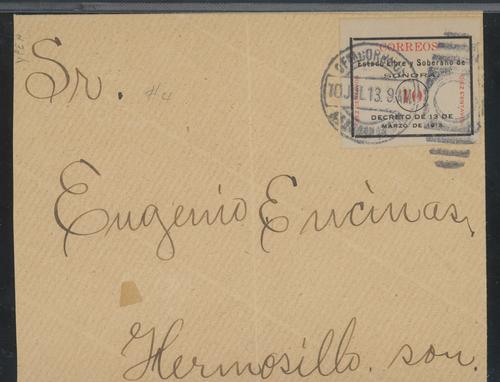 Sr.
CORREOS
Estado Libre y Soberano de
SONORA
10 JUL 13. 9
DECRETO DE 13 DE
MARZO DE 1913.
Eugenio Encinas,
Hermosillo. son.